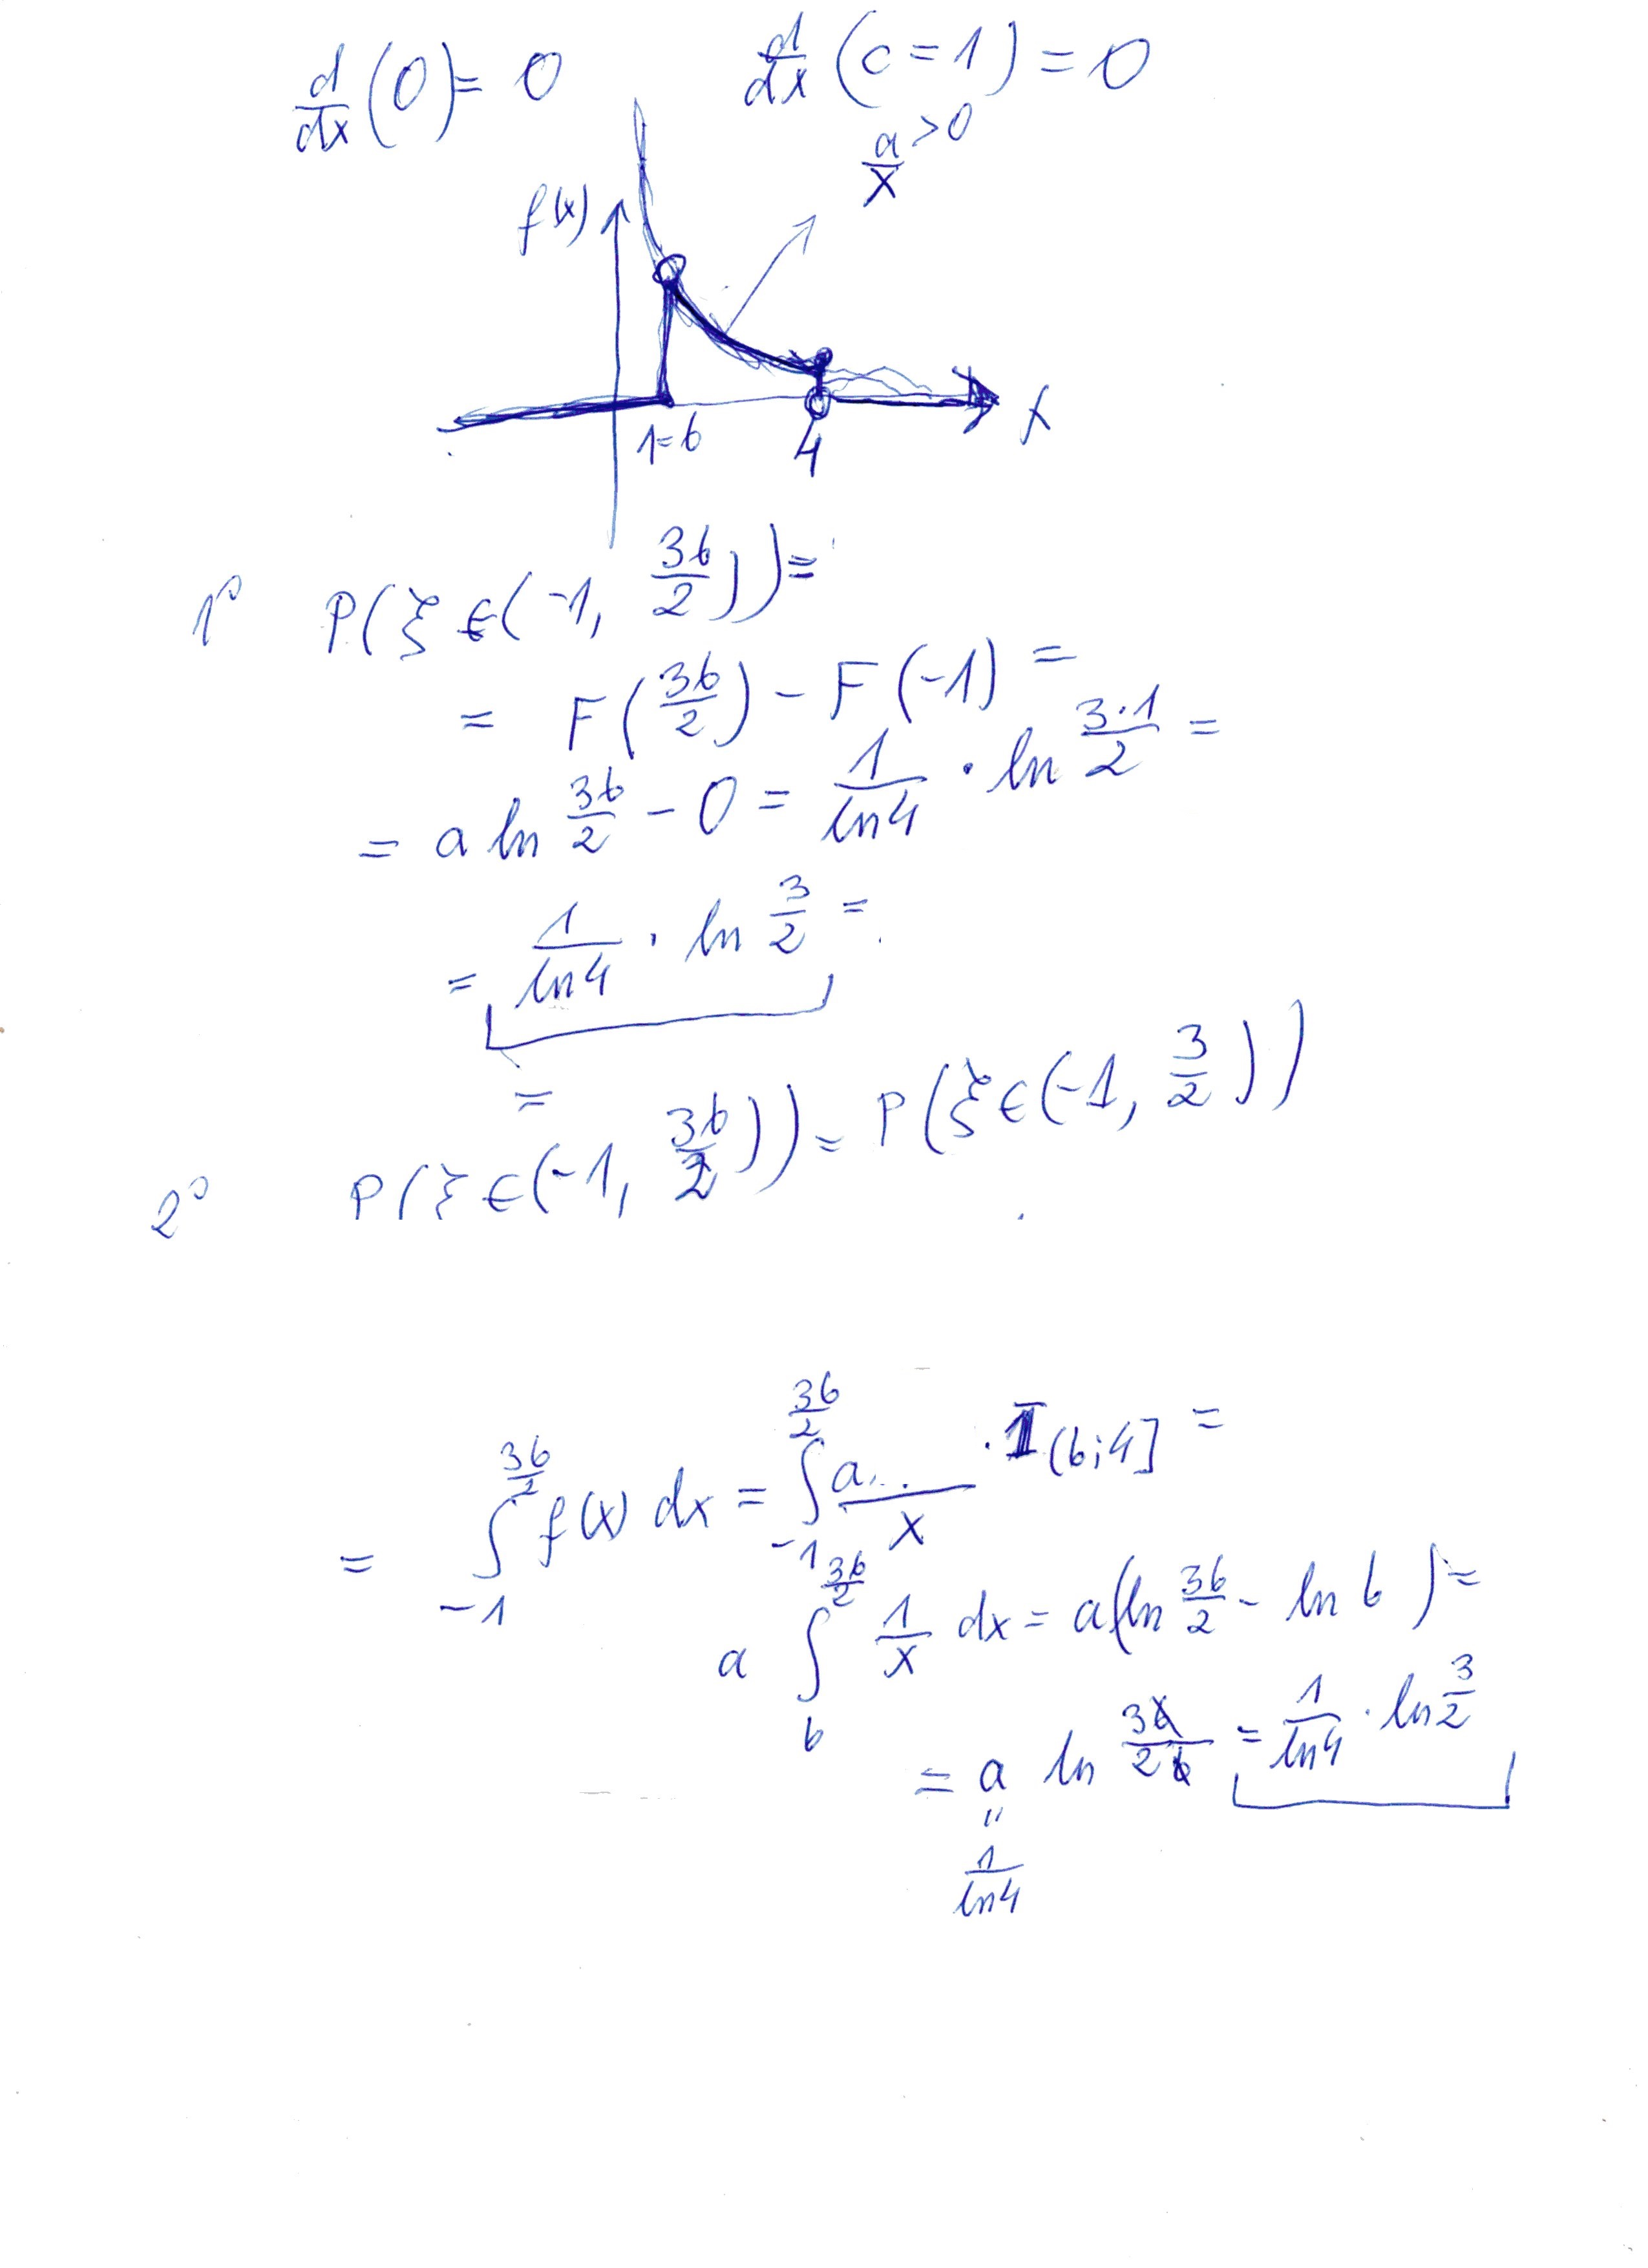 d/dx (0) = 0    d/dx (c = 1) = 0
a/x > 0
f(x)
x
1 = b    4
1° P(ξ ∈ (-1, 3b/2)) =
= F(3b/2) - F(-1) =
= a ln 3b/2 - 0 = 1/ln4 · ln 3·1/2 =
= 1/ln4 · ln 3/2 =
=
2° P(ξ ∈ (-1, 3b/2)) = P(ξ ∈ (-1, 3/2))
= ∫_{-1}^{3b/2} f(x) dx = ∫_{-1}^{3b/2} a/x · I(b;4] =
a ∫_b^{3b/2} 1/x dx = a(ln 3b/2 - ln b) =
= a ln 3b/2b = 1/ln4 · ln 3/2
"
1/ln4